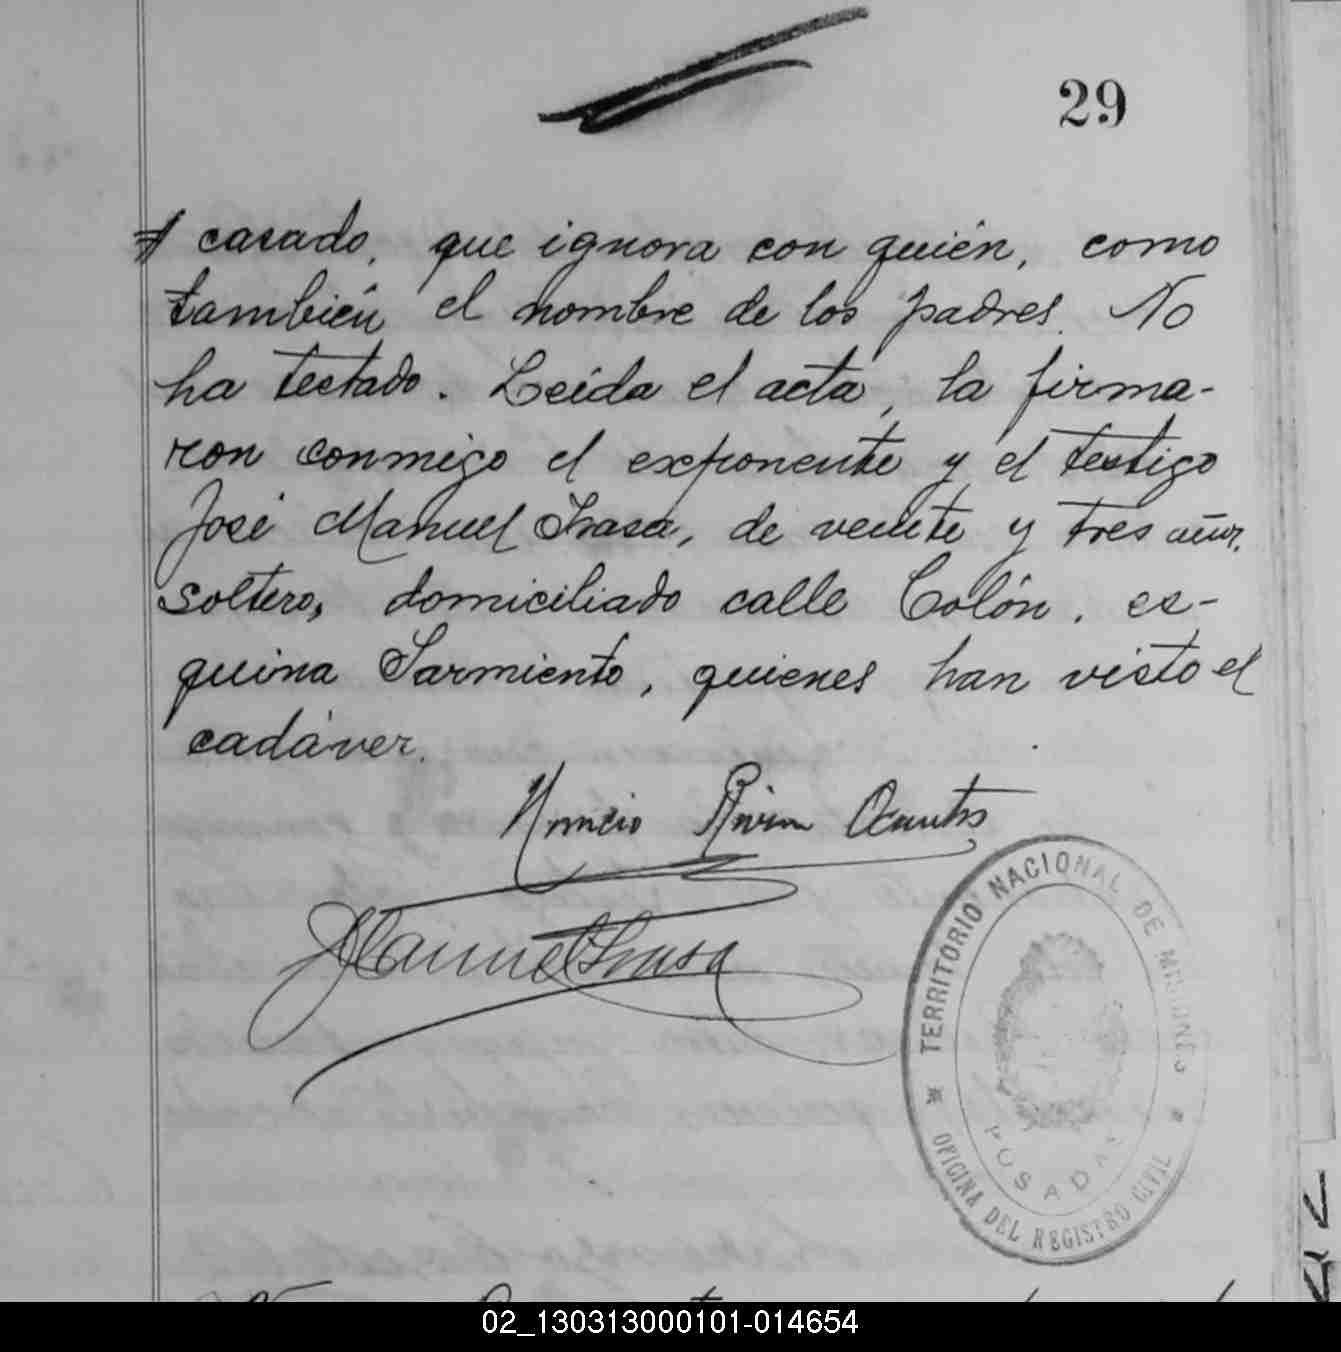 29
casado, que ignora con quién, como
también el nombre de los padres. No
ha testado. Leída el acta, la firma-
ron conmigo el exponente y el testigo
José Manuel Irasa, de veinte y tres años,
soltero, domiciliado calle Colón, es-
quina Sarmiento, quienes han visto el
cadáver.
TERRITORIO NACIONAL DE MISIONES
POSADAS
OFICINA DEL REGISTRO CIVIL
02_130313000101-014654